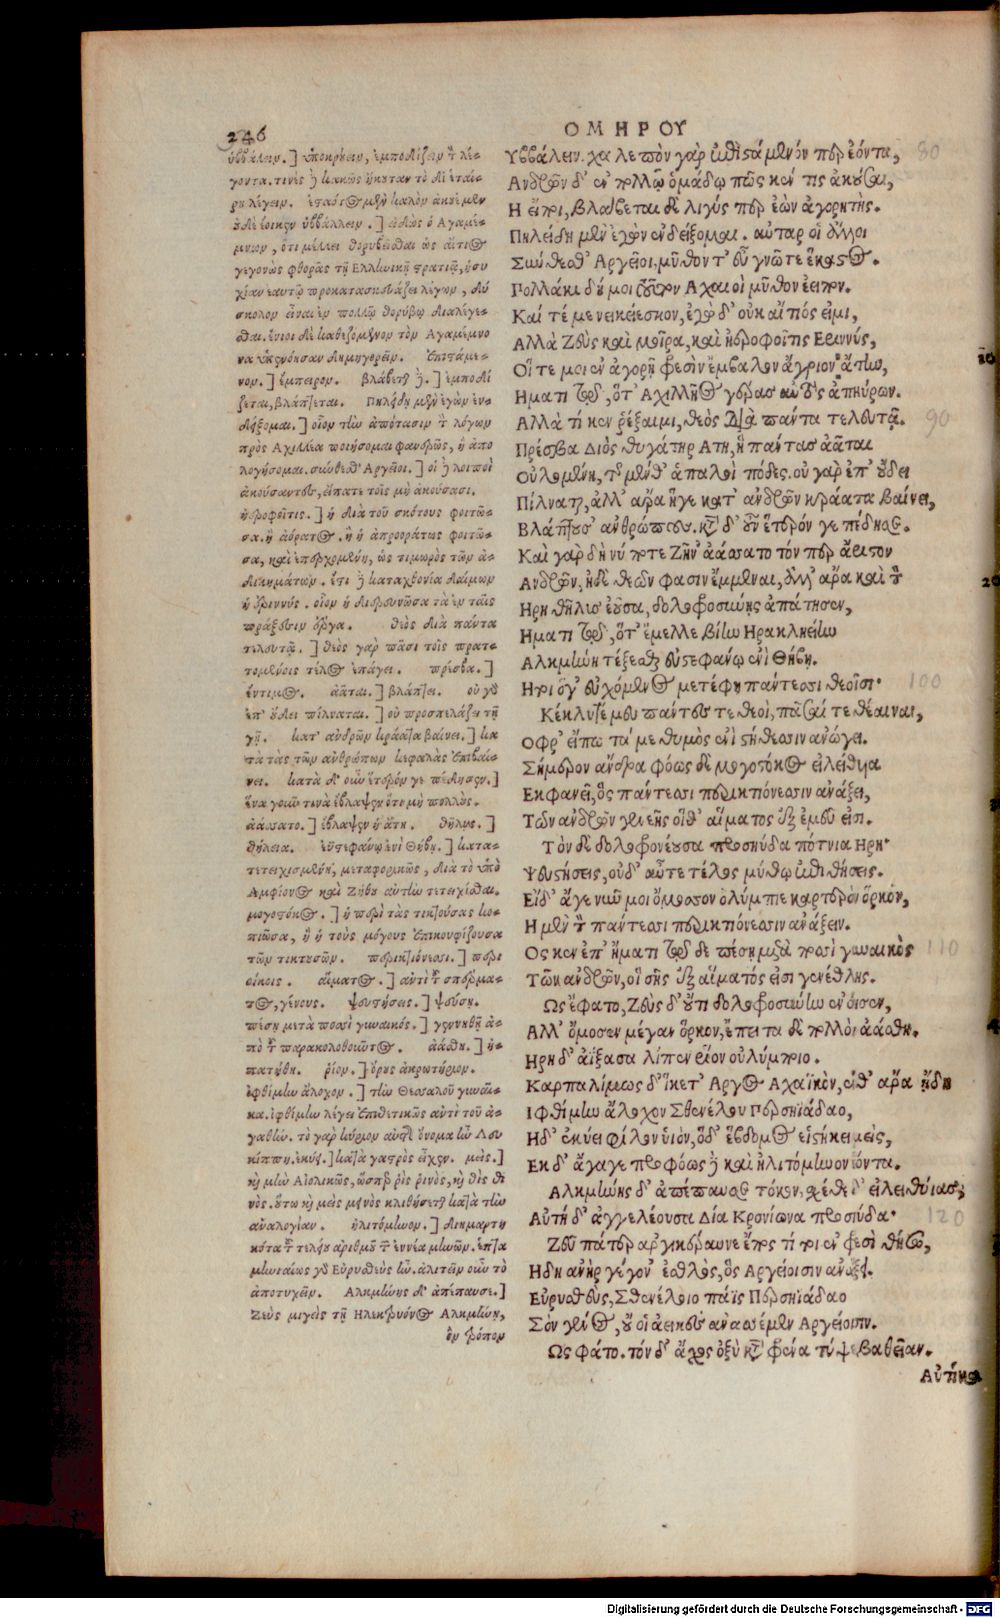 246
ΟΜΗΡΟΥ
ὑββάλειν.] ὑποκρύειν, ἐμποδίζειν τ λέ-
γοντα. τινὲς ἢ κακῶς ἤκουσαν τὸ δὲ ἑταί-
ρῳ λέγειν. ἑσταότος μὲν καλὸν ἀκουέμεν
οὐδὲ ἔοικεν ὑββάλλειν.] εἰδὼς ὁ Αγαμέ-
μνων, ὅτι μέλλει θορυβεῖσθαι ὡς αἴτιος
γεγονὼς φθορᾶς τῇ Ελληνικῇ στρατιᾷ, ἡσυ
χίαν ἑαυτῷ προκατασκευάζει λέγων, δύ
σκολον εἶναι ἐν πολλῷ θορύβῳ διαλέγε-
σθαι. ἔνιοι δὲ καθεζόμενον τὸν Αγαμέμνο
να ὑπενόησαν δημηγορεῖν. Επιστάμε-
νον.] ἔμπειρον. βλάβεται ἢ.] ἐμποδί
ζεται, βλάπτεται. Πηλείδῃ μὲν ἐγὼν ἐν-
δείξομαι.] οἷον τὴν ἀπότασιν τ λόγων
πρὸς Αχιλλέα ποιήσομαι φανερῶς, ἢ ἀπο
λογήσομαι. σύνθεσθ' Αργεῖοι.] οἱ ἢ λοιποὶ
ἀκούσαντες, εἴπατε τοῖς μὴ ἀκούσασι.
ἠεροφοῖτις.] ἡ διὰ τοῦ σκότους φοιτῶ-
σα. ἢ ἀόρατος. ἢ ἡ ἀπροοράτως φοιτῶ-
σα, καὶ ἐπερχομένη, ὡς τιμωρὸς τῶν ἀ-
δικημάτων. ἔτι ἢ καταχθονία δαίμων
ἡ ἐριννύς. οἷον ἡ διερευνῶσα τὰ ἐν ταῖς
πράξεσιν ἔργα. θεὸς διὰ πάντα
τελευτᾷ.] θεὸς γὰρ πᾶσι τοῖς πρατ-
τομένοις τέλος ἐπάγει. πρέσβα.]
ἔντιμος. ἀᾶται.] βλάπτει. οὐ γὰρ
ἐπ' οὔδει πίλναται.] οὐ προσπελάζει τῇ
γῇ. κατ' ἀνδρῶν κράατα βαίνει.] κα
τὰ τὰς τῶν ἀνθρώπων κεφαλὰς ἐπιβαί-
νει. κατὰ δ' οὖν ἕτερόν γε πέδησεν.]
ἕνα γοῦν τινὰ ἔβλαψεν ὅτε μὴ πολλούς.
ἀάσατο.] ἔβλαψεν ἡ ἄτη. θῆλυς.]
θήλεια. εὐστεφάνῳ ἐνὶ Θήβῃ.] κατα-
τετειχισμένῃ, μεταφορικῶς, διὰ τὸ ὑπὸ
Αμφίονος καὶ Ζήθου αὐτὴν τετειχίσθαι.
μογοστόκος.] ἡ περὶ τὰς τικτούσας κο-
πιῶσα, ἢ ἡ τοὺς μόγους ἐπικουφίζουσα
τῶν τικτουσῶν. περικτιόνεσσι.] περι
οίκοις. αἵματος.] ἀντὶ τ σπέρμα-
τος, γένους. ψευστήσεις.] ψεύσῃ.
πέσῃ μετὰ ποσσὶ γυναικός.] γεννηθῇ ἀ-
πὸ τ παρακολουθοῦντος. ἀάσθη.] ἠ-
πατήθη. ῥίον.] ὄρους ἀκρωτήριον.
ἰφθίμην ἄλοχον.] τὴν Θεσσαλοῦ γυναῖ-
κα. ἰφθίμην λέγει ἐπιθετικῶς ἀντὶ τοῦ ἀ-
γαθήν. τὸ γὰρ κύριον αὐτῆς ὄνομα ἦν Λευ
κίππη. ἐκύει.] κατὰ γαστρὸς εἶχεν. μείς.]
ἢ μὴν Αἰολικῶς, ὥσπερ ῥὶς ῥινὸς, ἢ θὶς θι
νὸς. οὕτω ἢ μεὶς μηνὸς κλιθήσεται κατὰ τὴν
ἀναλογίαν. ἠλιτόμηνον.] διημαρτη
κότα τ τελείου ἀριθμοῦ τ ἐννέα μηνῶν. ἑπτα
μηνιαίως γὰρ Εὐρυσθεὺς ἦν. ἀλιτεῖν οὖν τὸ
ἀποτυχεῖν. Αλκμήνης δ' ἀπέπαυσε.]
Ζεὺς μιγεὶς τῇ Ηλεκτρυόνος Αλκμήνῃ,
ὃν τρόπον
Υββάλειν. χαλεπὸν γὰρ ἐπιστάμενόν περ ἐόντα,
Ανδρῶν δ' ἐν πολλῷ ὁμάδῳ πῶς κεν τις ἀκούσαι,
Η εἴποι, βλάβεται δὲ λιγύς περ ἐὼν ἀγορητὴς.
Πηλείδῃ μὲν ἐγὼν ἐνδείξομαι. αὐτὰρ οἱ ἄλλοι
Σύνθεσθ' Αργεῖοι, μῦθον τ' εὖ γνῶτε ἕκαστος.
Πολλάκι δή μοι τοῦτον Αχαιοὶ μῦθον ἔειπον.
Καί τέ με νεικείεσκον, ἐγὼ δ' οὐκ αἴτιός εἰμι,
Αλλὰ Ζεὺς καὶ μοῖρα, καὶ ἠεροφοῖτις Εριννύς,
Οἵ τε μοι εἰν ἀγορῇ φρεσὶν ἔμβαλον ἄγριον ἄτην,
Ηματι τῷ, ὅτ' Αχιλλῆος γέρας αὐτὸς ἀπηύρων.
Αλλὰ τί κεν ῥέξαιμι, θεὸς διὰ πάντα τελευτᾷ.
Πρέσβα Διὸς θυγάτηρ Ατη, ἣ πάντας ἀᾶται
Οὐλομένη, τῆς μένθ' ἁπαλοὶ πόδες. οὐ γὰρ ἐπ' οὔδει
Πίλναται, ἀλλ' ἄρα ἥγε κατ' ἀνδρῶν κράατα βαίνει,
Βλάπτουσ' ἀνθρώπους. κατὰ δ' οὖν ἕτερόν γε πέδησε.
Καὶ γὰρ δή νύ ποτε Ζῆν' ἀάσατο τόν περ ἄριστον
Ανδρῶν, ἠδὲ θεῶν φασιν ἔμμεναι, ἀλλ' ἄρα καὶ τ
Ηρη θῆλυς ἐοῦσα, δολοφροσύνης ἀπάτησεν,
Ηματι τῷ, ὅτ' ἔμελλε βίην Ηρακληείην
Αλκμήνη τέξεσθαι ἐυστεφάνῳ ἐνὶ Θήβῃ.
Ητοι ὅγ' εὐχόμενος μετέφη πάντεσσι θεοῖσι·
Κέκλυτέ μευ πάντες τε θεοὶ, πᾶσαί τε θέαιναι,
Οφρ' εἴπω τά με θυμὸς ἐνὶ στήθεσσιν ἀνώγει.
Σήμερον ἄνδρα φόως δὲ μογοστόκος εἰλείθυια
Εκφανεῖ, ὃς πάντεσσι περικτιόνεσσιν ἀνάξει,
Τῶν ἀνδρῶν γενεῆς οἵθ' αἵματος ἐξ ἐμεῦ εἰσι.
Τὸν δὲ δολοφρονέουσα προσηύδα πότνια Ηρη·
Ψευστήσεις, οὐδ' αὖτε τέλος μύθῳ ἐπιθήσεις.
Εἰ δ' ἄγε νῦν μοι ὄμοσσον ὀλύμπιε καρτερὸν ὅρκον,
Η μὲν τ πάντεσσι περικτιόνεσσιν ἀνάξειν.
Ος κεν ἐπ' ἤματι τῷδε πέσῃ μετὰ ποσσὶ γυναικὸς
Τῶν ἀνδρῶν, οἳ σῆς ἐξ αἵματός εἰσι γενέθλης.
Ως ἔφατο, Ζεὺς δ' οὔτι δολοφροσύνην ἐνόησεν,
Αλλ' ὄμοσεν μέγαν ὅρκον, ἔπειτα δὲ πολλὸν ἀάσθη.
Ηρη δ' ἀΐξασα λίπεν ῥίον οὐλύμποιο.
Καρπαλίμως δ' ἵκετ' Αργος Αχαϊκὸν, ἔνθ' ἄρα ᾔδη
Ιφθίμην ἄλοχον Σθενέλου Περσηϊάδαο,
Ηδ' ἐκύει φίλον ὑιὸν, ὅδ' ἕβδομος εἱστήκει μεὶς,
Εκ δ' ἄγαγε προφόως ἢ καὶ ἠλιτόμηνον ἐόντα.
Αλκμήνης δ' ἀπέπαυσε τόκον, σχέθε δ' εἰλειθυίας;
Αὐτή δ' ἀγγελέουσα Δία Κρονίωνα προσηύδα·
Ζεῦ πάτερ ἀργικέραυνε ἔπος τί τοι ἐν φρεσὶ θήσω,
Ηδη ἀνὴρ γέγον' ἐσθλὸς, ὃς Αργείοισιν ἀνάξει.
Εὐρυσθεὺς, Σθενέλοιο πάϊς Περσηϊάδαο
Σὸν γένος, οὔ οἱ ἀεικὲς ἀνασσέμεν Αργείοισιν.
Ως φάτο. τὸν δ' ἄχος ὀξὺ κατὰ φρένα τύψε βαθεῖαν.
Αὐτίκα
80
90
100
110
120
Digitalisierung gefördert durch die Deutsche Forschungsgemeinschaft - DFG